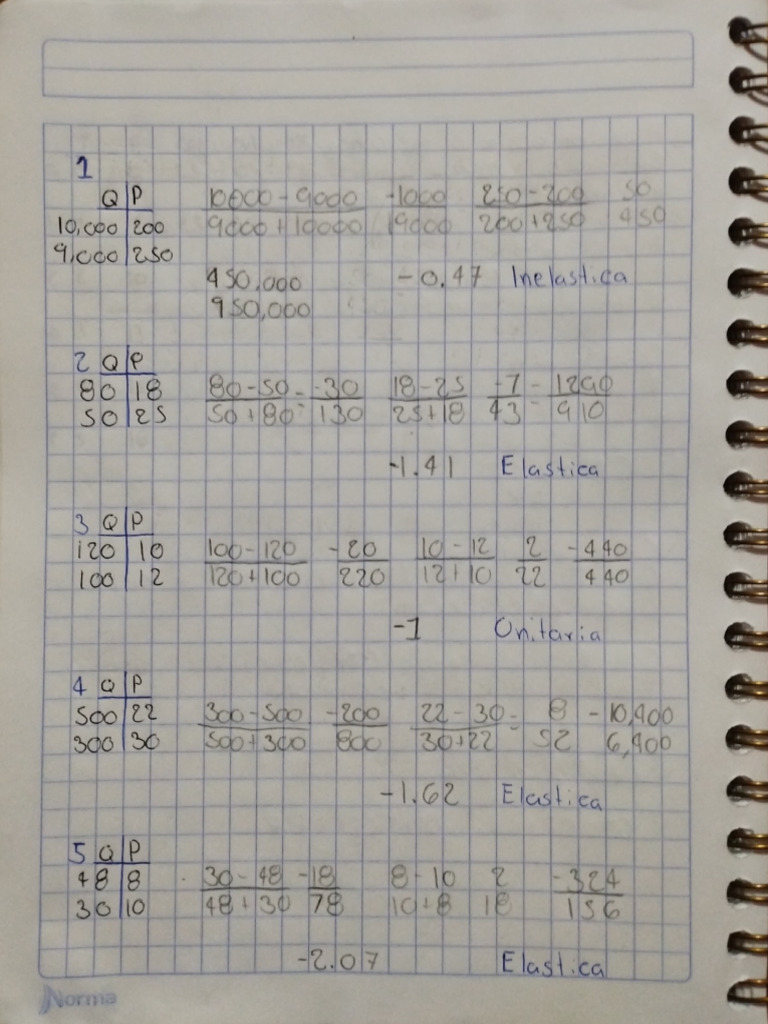 1
Q P 10000 - 9000 -1000 250 - 200 50
10,000 200 9000 + 10000 19000 200 + 250 450
9,000 250
450,000 -0.47 Inelastica
950,000
2 Q P
80 18 80 - 50 = -30 18 - 25 -7 = 1290
50 25 50 + 80 = 130 25 + 18 43 = 910
-1.41 Elastica
3 Q P
120 10 100 - 120 -20 10 - 12 2 -440
100 12 120 + 100 220 12 + 10 22 440
-1 Unitaria
4 Q P
500 22 300 - 500 -200 22 - 30 = 8 -10,400
300 30 500 + 300 800 30 + 22 52 6,400
-1.62 Elastica
5 Q P
48 8 30 - 48 -18 8 - 10 2 -324
30 10 48 + 30 78 10 + 8 18 156
-2.07 Elastica
Norma